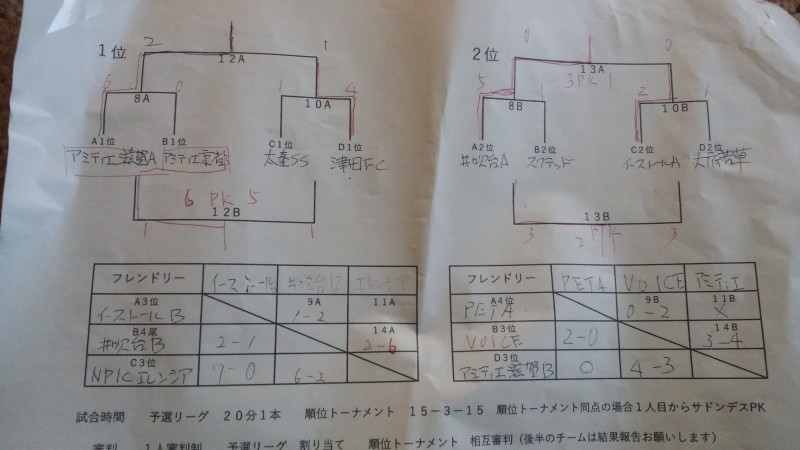 1位 2 1 2位 0 0
12A 13A
3PK1
6 0 1 4 5 1 2 1
8A 10A 8B 10B
A1位 B1位 C1位 D1位 A2位 B2位 C2位 D2位
アミティエ滋賀A アミティエ京都 太秦SS 津田FC 井吹台A スクデッド イーストールA
6 PK 5
12B 13B
1 1 3 2 PK 3
フレンドリー イーストール 井吹台B エレンシア
A3位 9A 11A
イーストールB 1-2
B4尾 14A
井吹台B 2-1 2-6
C3位
NPICエレンシア 7-0 6-2
フレンドリー PETA VOICE アミティエ
A4位 9B 11B
PETA 0-2 ×
B3位 14B
VOICE 2-0 3-4
D3位
アミティエ滋賀B 0 4-3
試合時間 予選リーグ 20分1本 順位トーナメント 15-3-15 順位トーナメント同点の場合1人目からサドンデスPK
審判 1人審判制 予選リーグ 割り当て 順位トーナメント 相互審判(後半のチームは結果報告お願いします)